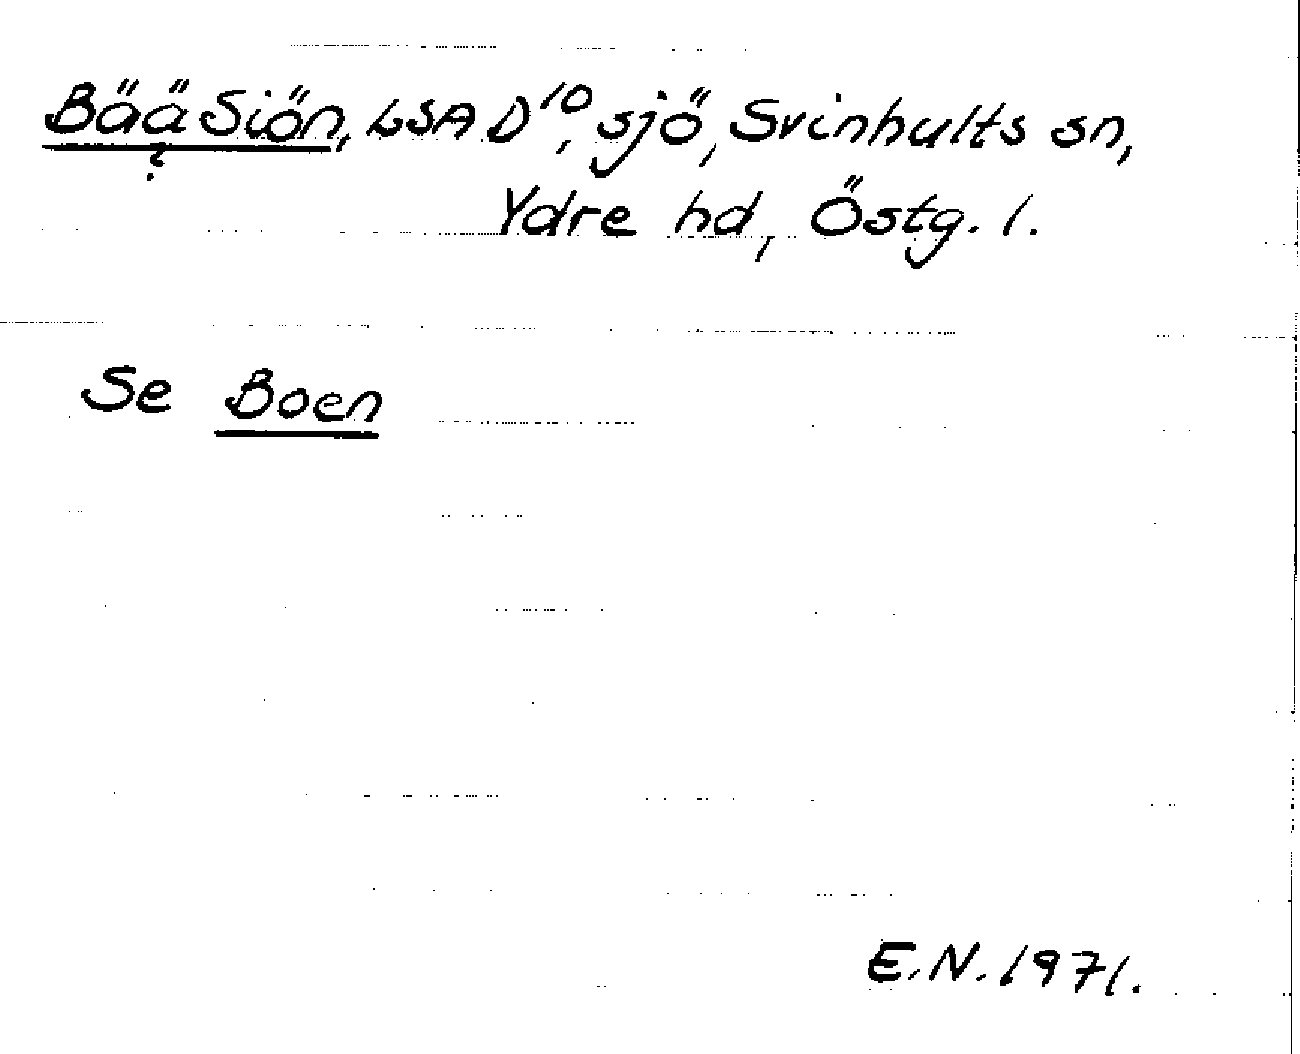 Bää Siön, LSA D¹⁰, sjö, Svinhults sn,
?
Ydre hd, Östg. l.
Se Boen
E.N. 1971.